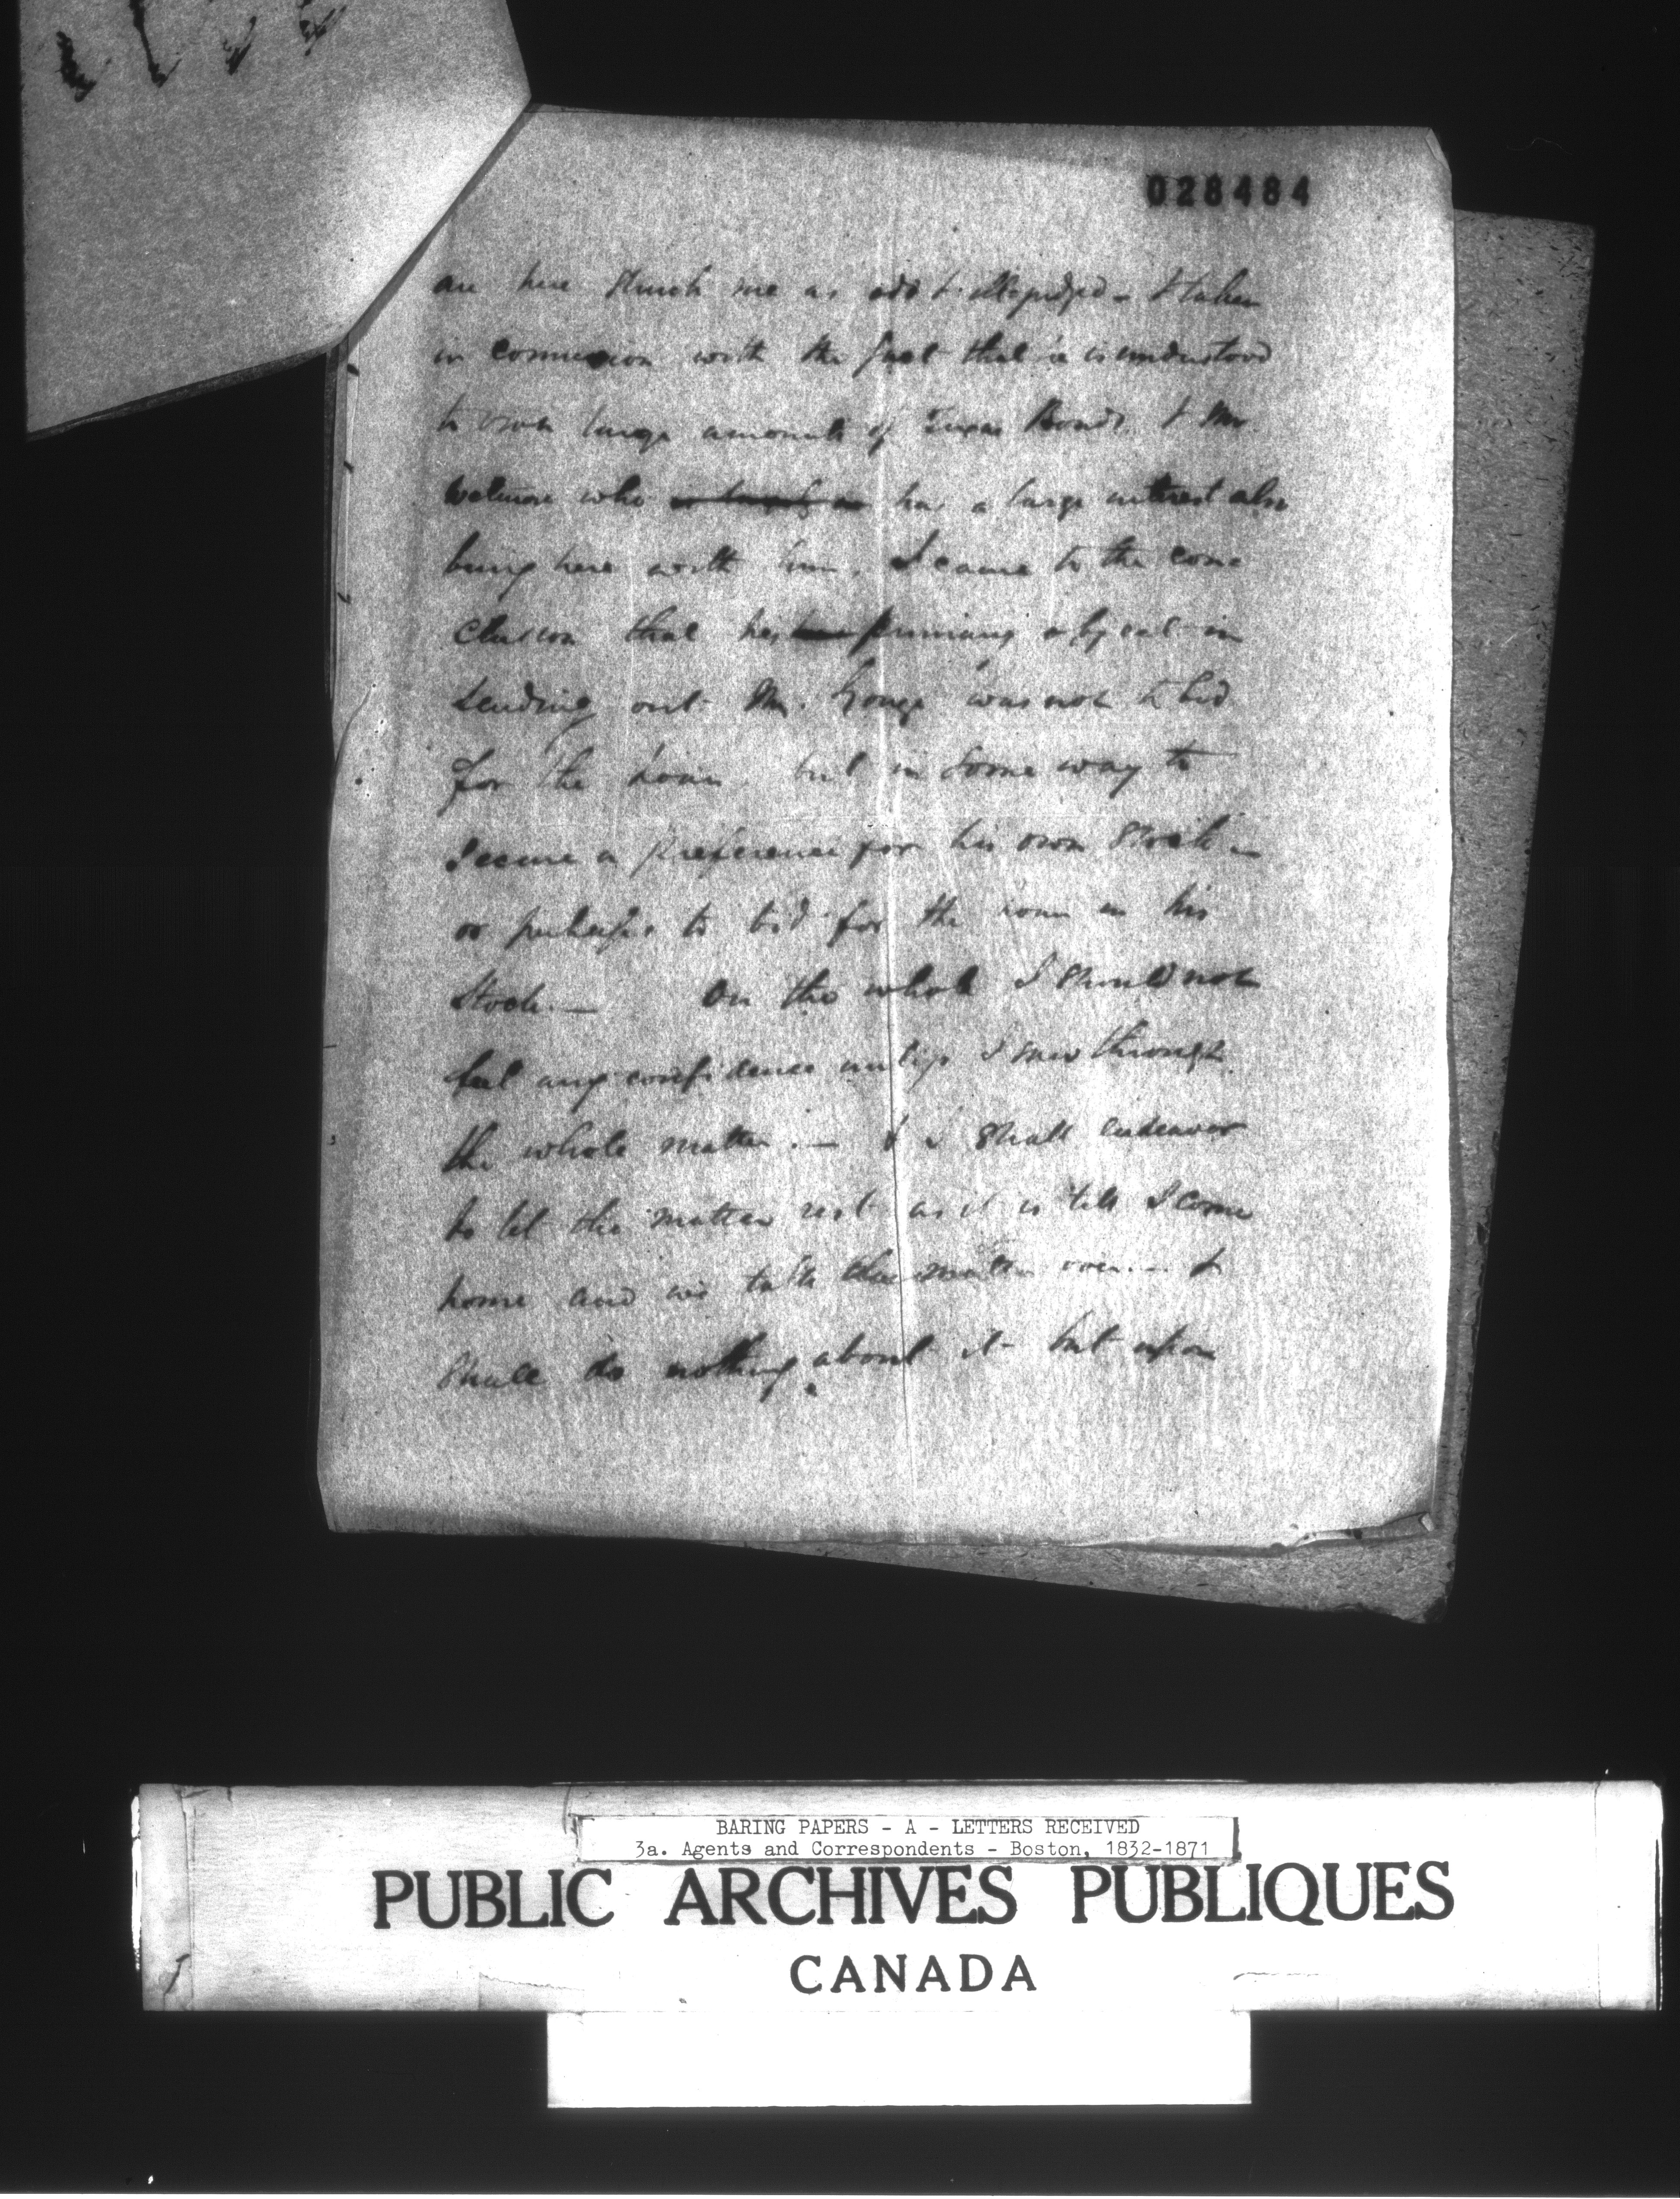 028484
are here struck me as odd & - & taken
in connexion with the fact that he is understood
to own large amounts of Texas Bonds & Mr
Wetmore who has a large interest also
being here with him, I came to the conc
clusion that his primary object in
sending out Mr. was not to bid
for the loan but in some way to
secure a preference for his own Stock -
or perhaps to bid for the loan in his
Stock. — On the whole I should not
feel any confidence unless I saw through
the whole matter. — & I shall endeavor
to let the matter rest as it is till I come
home and we talk the matter over. - &
shall do nothing about it but upon
BARING PAPERS - A - LETTERS RECEIVED
3a. Agents and Correspondents - Boston, 1832-1871
PUBLIC ARCHIVES PUBLIQUES
CANADA